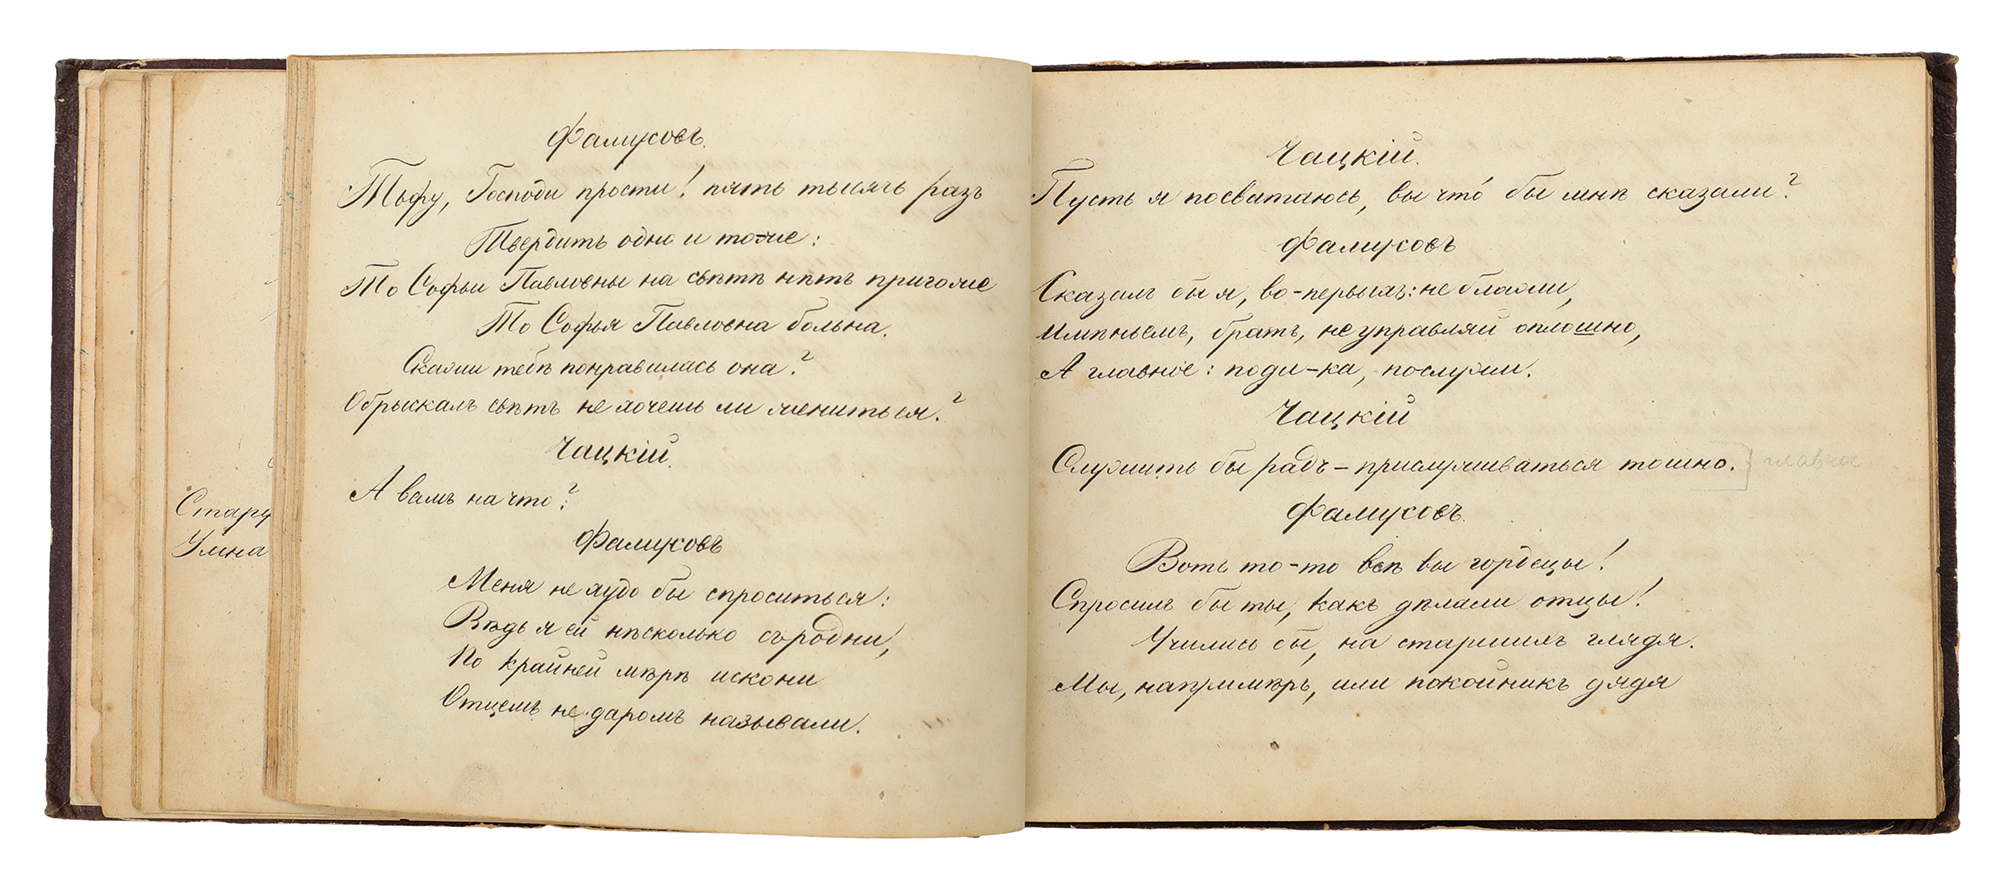 Стару
Умна
Фамусовъ.
Тьфу, Господи прости! пять тысячь разъ
Твердить одно и тоже:
То Софьи Павловны на свѣтѣ нѣтъ пригоже
То Софья Павловна больна.
Скажи тебѣ понравилась она?
Обрыскалъ свѣтъ не хочешь ли жениться?
Чацкій.
А вамъ на что?
Фамусовъ
Меня не худо бы спроситься:
Вѣдь я ей нѣсколько съродни,
По крайней мѣрѣ искони
Отцемъ не даромъ называли.
Чацкій.
Пусть я посватаюсь, вы что́ бы мнѣ сказали?
Фамусовъ
Сказалъ бы я, во-первыхъ: не блажи,
Имѣньемъ, братъ, не управляй оплошно,
А главное: поди-ка, послужи.
Чацкій
Служить бы радъ – прислуживаться тошно. главное
Фамусовъ.
Вотъ то-то всѣ вы гордецы!
Спросилъ бы ты, какъ дѣлали отцы!
Учились бы, на старшихъ глядя.
Мы, напримѣръ, или покойникъ дядя